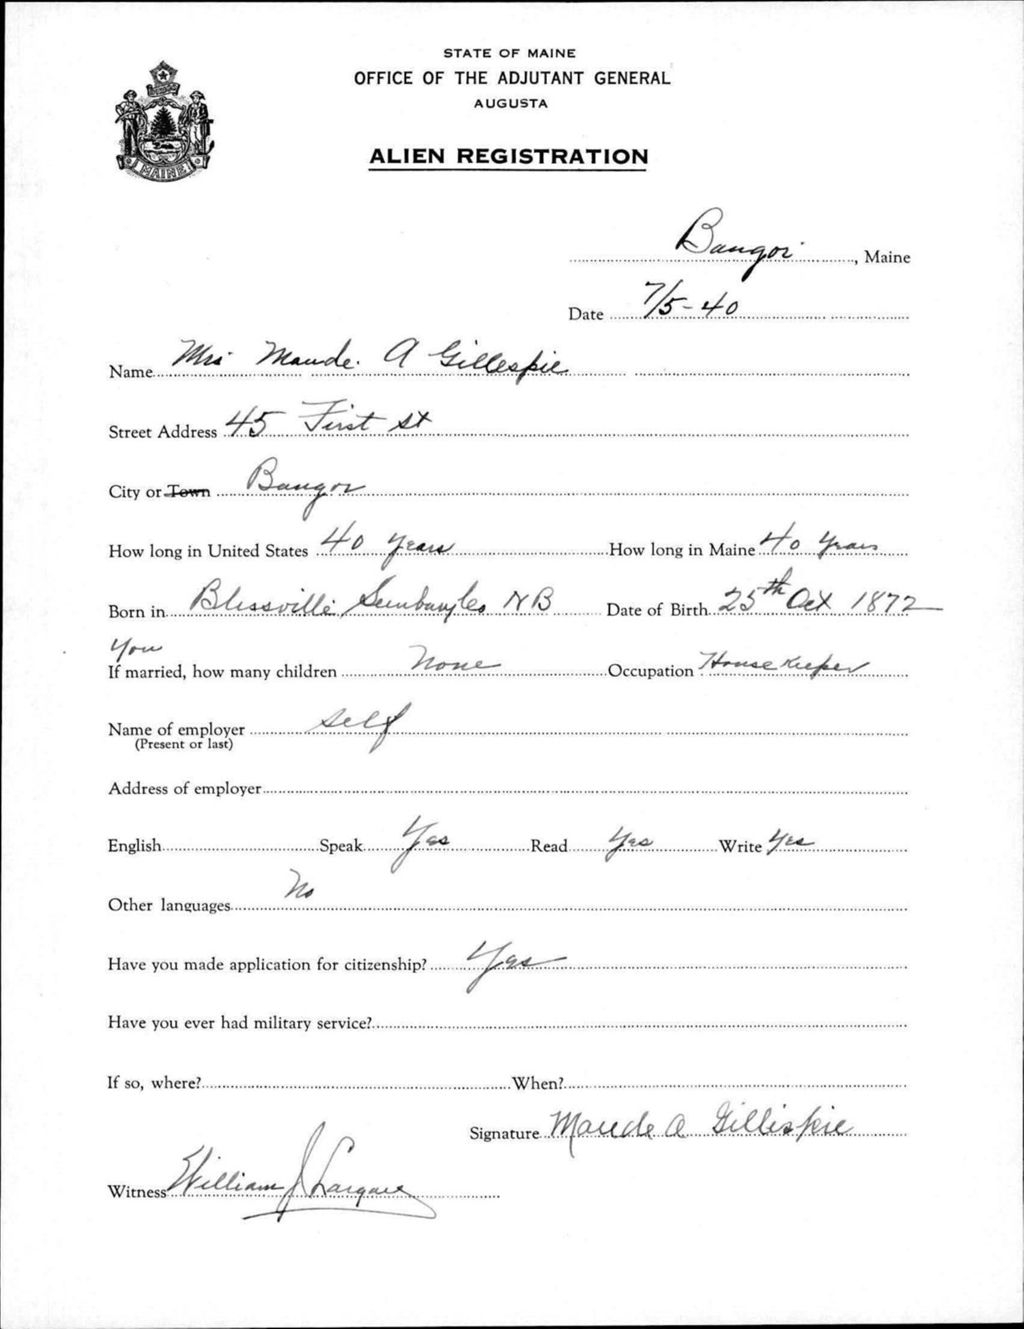 STATE OF MAINE
OFFICE OF THE ADJUTANT GENERAL
AUGUSTA
ALIEN REGISTRATION
MAINE
Bangor, Maine
Date 7/5-40
Name Mrs Maude A Gillespie
Street Address 45 First St
City or Town Bangor
How long in United States 40 years How long in Maine 40 years
Born in Blissville NB Date of Birth 25th Oct 1872
If married, how many children None Occupation Housekeeper
Name of employer self
(Present or last)
Address of employer
English Speak Yes Read Yes Write Yes
Other languages No
Have you made application for citizenship? Yes
Have you ever had military service?
If so, where? When?
Signature Maude A Gillispie
Witness William J